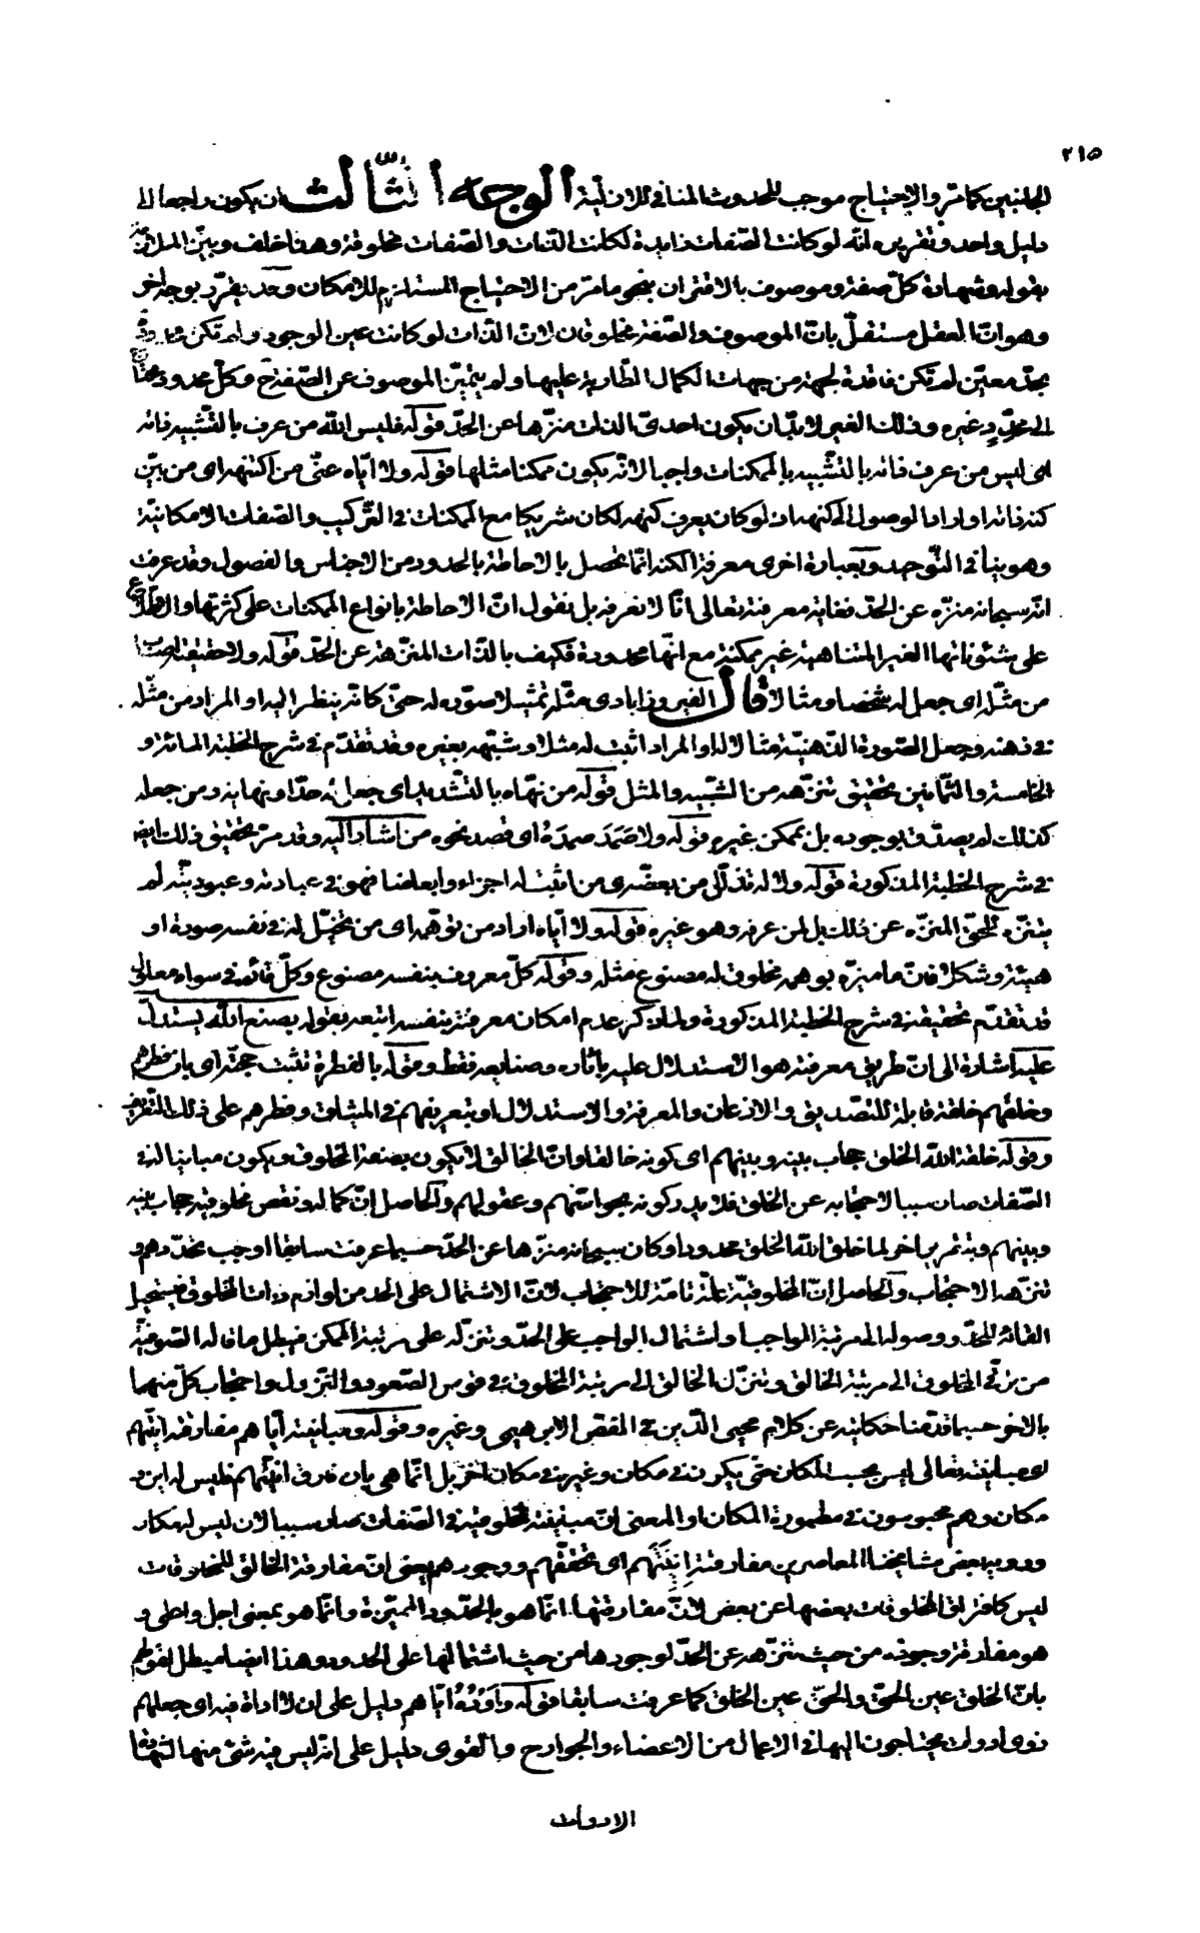 ٢١٥
الجانبين كما مرّ والاحتياج موجب للحدوث المنافي للازليّة الوجه الثّالث ان يكون راجعا الى
دليل واحد وتقريره انّه لو كانت الصّفات زايدة لكانت الذّات والصّفات مخلوقة وهذا خلف وبيّن الملازمة
بقوله وشهادة كلّ صفة وموصوف بالاقتران بنحو ما مرّ من الاحتياج المستلزم للامكان وقد يقرّر بوجه اخر
وهو انّ العقل مستقلّ بانّ الموصوف والصّفة مخلوقان لانّ الذّات لو كانت عين الوجود ولم تكن
بحدّ معيّن لم تكن فاقدة لجهة من جهات الكمال الطّارية عليها ولم يتميّز الموصوف عن الصّفة ح وكلّ محدود محتاج
الى محدّد غيره وذلك الغير لا بدّ ان يكون احديّ الذات منزّها عن الحدّ قوله فليس الله من عرف بالتّشبيه ذاته
اى ليس من عرف ذاته بالتّشبيه بالممكنات واجبا لانّه يكون ممكنا مثلها قوله ولا ايّاه عنى من اكتنهه اى من بيّن
كنه ذاته او اراد الوصول الى كنهه اذ لو كان يعرف كنهه لكان شريكا مع الممكنات في التّركيب والصّفات الامكانيّة
وهو ينافي التّوحيد وبعبارة اخرى معرفة الكنه انّما تحصل بالاحاطة بالحدود من الاجناس والفصول وقد عرفت
انّه سبحانه منزّه عن الحدّ فغاية معرفته تعالى انّا لا نعرفه بل نقول انّ الاحاطة بانواع الممكنات على كثرتها والاطّلاع
على شئوناتها الغير المتناهية غير ممكنة مع انّها محدودة فكيف بالذّات المنزّهة عن الحدّ قوله ولا حقيقته اصاب
من مثّله اى جعل له شخصا ومثالا قال الفيروزابادى مثّله تمثيلا صوّره له حتّى كانّه ينظر اليه او المراد من مثّله
في ذهنه وجعل الصّورة الذّهنيّة مثالا له او المراد اثبت له مثلا وشبّهه بغيره وقد تقدّم في شرح الخطبة المائة و
الخامسة والثّمانين تحقيق تنزّهه من الشّبيه والمثل قوله من نهّاه بالتّشديد اى جعل له حدّا ونهاية ومن جعله
كذلك لم يصدّق بوجوده بل بممكن غيره قوله ولا صَمَدَ صمدَهُ اى قصد نحوه من اشار اليه وقد مرّ تحقيق ذلك ايضا
في شرح الخطبة المذكورة قوله ولا له تذلّل من بعّضه اى من اثبت له اجزاء وابعاضا فهو في عبادته وعبوديّته لم
يتنزّه للحقّ المنزّه عن ذلك بل لمن عرفه وهو غيره قوله ولا ايّاه اراد من توهّمه اى من تخيّل له في نفسه صورة او
هيئة وشكلا فانّ ما ميّزه بوهمه مخلوق له مصنوع مثله وقوله كلّ معروف بنفسه مصنوع وكلّ قائم في سواه معلول
قد تقدّم تحقيقه في شرح الخطبة المذكورة ولما ذكر عدم امكان معرفته بنفسه اتبعه بقوله بصنع الله يستدلّ
عليه اشارة الى انّ طريق معرفته هو الاستدلال عليه باثاره وصنايعه فقط وقوله بالفطرة تثبت حجّته اى بان فطرهم
وخلقهم خلقة قابلة للتصديق والاذعان والمعرفة والاستدلال او بتعريفهم في الميثاق وفطرهم على ذلك التّعريف
وقوله خلقة الله الخلق حجاب بينه وبينهم اى كونه خالقا وانّ الخالق لا يكون بصفة المخلوق ويكون مباينا له في
الصّفات صار سببا لاحتجابه عن الخلق فلا يدركونه بحواسّهم وعقولهم والحاصل انّ كماله ونقص مخلوقيه حجاب بينه
وبينهم وبتقرير اخر لما خلق الله الخلق محدودا وكان سبحانه منزّها عن الحدّ حسبما عرفت سابقا اوجب تحدّدهم و
تنزّهه الاحتجاب والحاصل انّ المخلوقيّة علّة تامّة للاحتجاب لانّ الاشتمال على الحدّ من لوازم ذات المخلوق فيستحيل
القائه للحدّ ووصوله الى مرتبة الواجب واشتمال الواجب على الحدّ وتنزّله على مرتبة الممكن فبطل ما قاله الصّوفيّة
من ترقّي المخلوق الى مرتبة الخالق وتنزّل الخالق الى مرتبة المخلوق في قوس الصّعود والنّزول واحتجاب كلّ منهما
بالاخر حسبما قدّمنا حكايته عن كلام محيى الدّين في الفصّ الابرهيمى وغيره وقوله ومباينته ايّاهم مفارقته انيّتهم
اى مباينته تعالى ليس بحسب المكان حتّى يكون في مكان وغيره في مكان اخر بل انّما هى بان فارق انيّتهم فليس له اين و
مكان وهم محبوسون في مطمورة المكان او المعنى انّ مباينته لمخلوقيه في الصّفات صار سببا لان ليس له مكان
وروى بعض مشايخنا المعاصرين مفارقته إنِّيَّتَهُم اى تحقّقهم ووجودهم يعنى انّ مفارقة الخالق للمخلوقات
ليس كافتراق المخلوقات بعضها عن بعض لانّ مفارقتها انّما هو بالحدّود المميّزة وانّما هو بمعنى اجلّ واعلى و
هو مفارقة وجوده من حيث تنزّهه عن الحدّ لوجودها من حيث اشتمالها على الحدود وهذا ايضا مبطل لقولهم
بانّ الخلق عين الحقّ والحقّ عين الخلق كما عرفت سابقا قوله وَاَدْوُهُ ايّاهم دليل على ان لا اداة فيه اى جعلهم
ذوى ادوات يحتاجون اليها في الاعمال من الاعضاء والجوارح والقوى دليل على انّه ليس فيه شئ منها لشهادة
الادوات